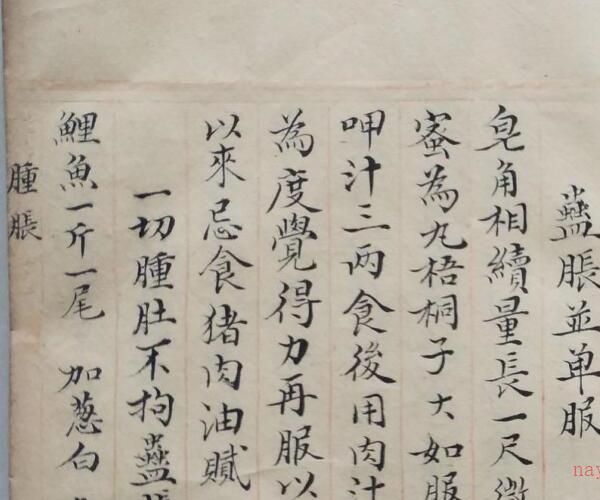 蠱脹並单服
皂角相續量長一尺
蜜為丸梧桐子大如服
呷汁三两食後用肉汁
為度覺得力再服以
以來忌食猪肉油膩
一切腫肚不拘蠱脹
鯉魚一斤一尾 加葱白
腫脹
nay